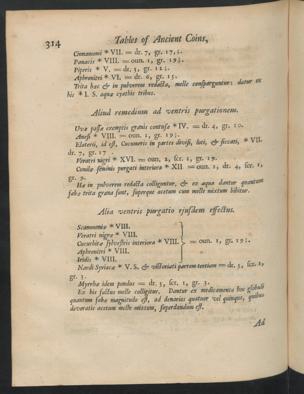 314
Tables of Ancient Coins,
Cinnamomi * VII. = dr. 7, gr. 17,5.
Panacis * VIII. = oun. 1, gr. 19 1/2.
Piperis * V. = dr. 5, gr. 12 1/2.
Aphronitri * VI. = dr. 6, gr. 15.
Trita hæc & in pulverem redacta, melle consparguntur: datur ex
his * I. S. aquæ cyathis tribus.
Aliud remedium ad ventris purgationem.
Uvæ passæ exemptis granis contusæ * IV. = dr. 4, gr. 10.
Anesi * VIII. = oun. 1, gr. 19 1/2.
Elaterii, id est, Cucumeris in partes divisi, luti, & siccati, * VII.
dr. 7, gr. 17
Veratri nigri * XVI. = oun. 2, scr. 1, gr. 19.
seminis purgati interiora * XII = oun. 1, dr. 4, scr. 1,
gr. 9.
Hæ in pulverem redacta colliguntur, & ex aqua dantur quantum
faba trita grana sunt, superque acetum cum melle mixtum bibitur.
Alia ventris purgatio ejusdem effectus.
Scammoniæ * VIII.
Veratri nigri * VIII.
Cucurbitæ sylvestris interiora * VIII. } = oun. 1, gr. 19 1/2.
Aphronitri * VIII.
Iridis * VIII.
Nardi Syriacæ * V. S. & victoriati partem tertiam = dr. 5, scr. 2,
gr. 3.
Myrrhæ idem pondus = dr. 5, scr. 2, gr. 3.
Ex his factus melle colligitur. Dantur ex medicamento hoc globuli
quantum fabæ magnitudo est, ad denarios quatuor vel quinque, quibus
devoratis acetum melle mixtum, superdandum est.
Ad